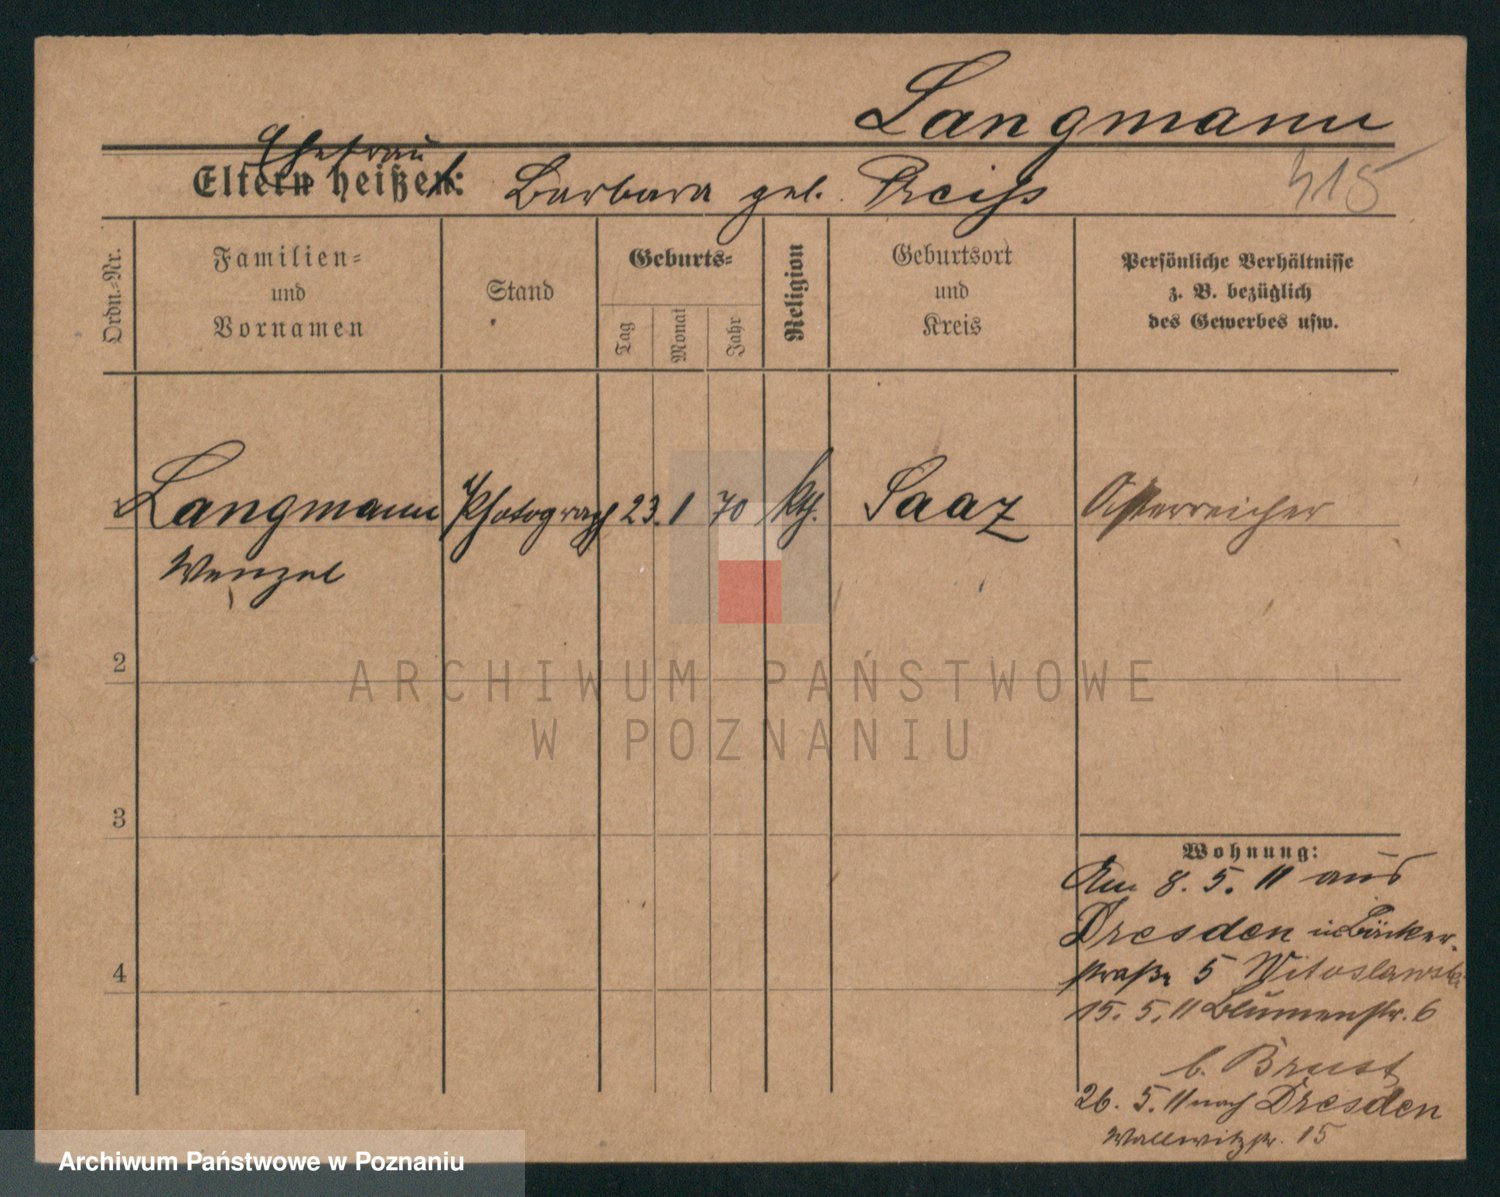 Langmann
Ehefrau
Eltern heißen: Barbara geb. Preiss
315
Ordn.-Nr.
Familien-
und
Vornamen
Stand
Geburts-
Tag
Monat
Jahr
Religion
Geburtsort
und
Kreis
Persönliche Verhältnisse
z. B. bezüglich
des Gewerbes usw.
Langmann Photograph 23. 1 70 kth. Saaz Österreicher
Wenzel
2
ARCHIWUM PAŃSTWOWE
W POZNANIU
3
Wohnung:
Am 8. 5. 11 aus
Dresden in Bäcker-
straße 5 Witoslawski
15. 5. 11 Blumenstr. 6
b. Brust
4
26. 5. 11 nach Dresden
Wallwitzstr. 15
Archiwum Państwowe w Poznaniu